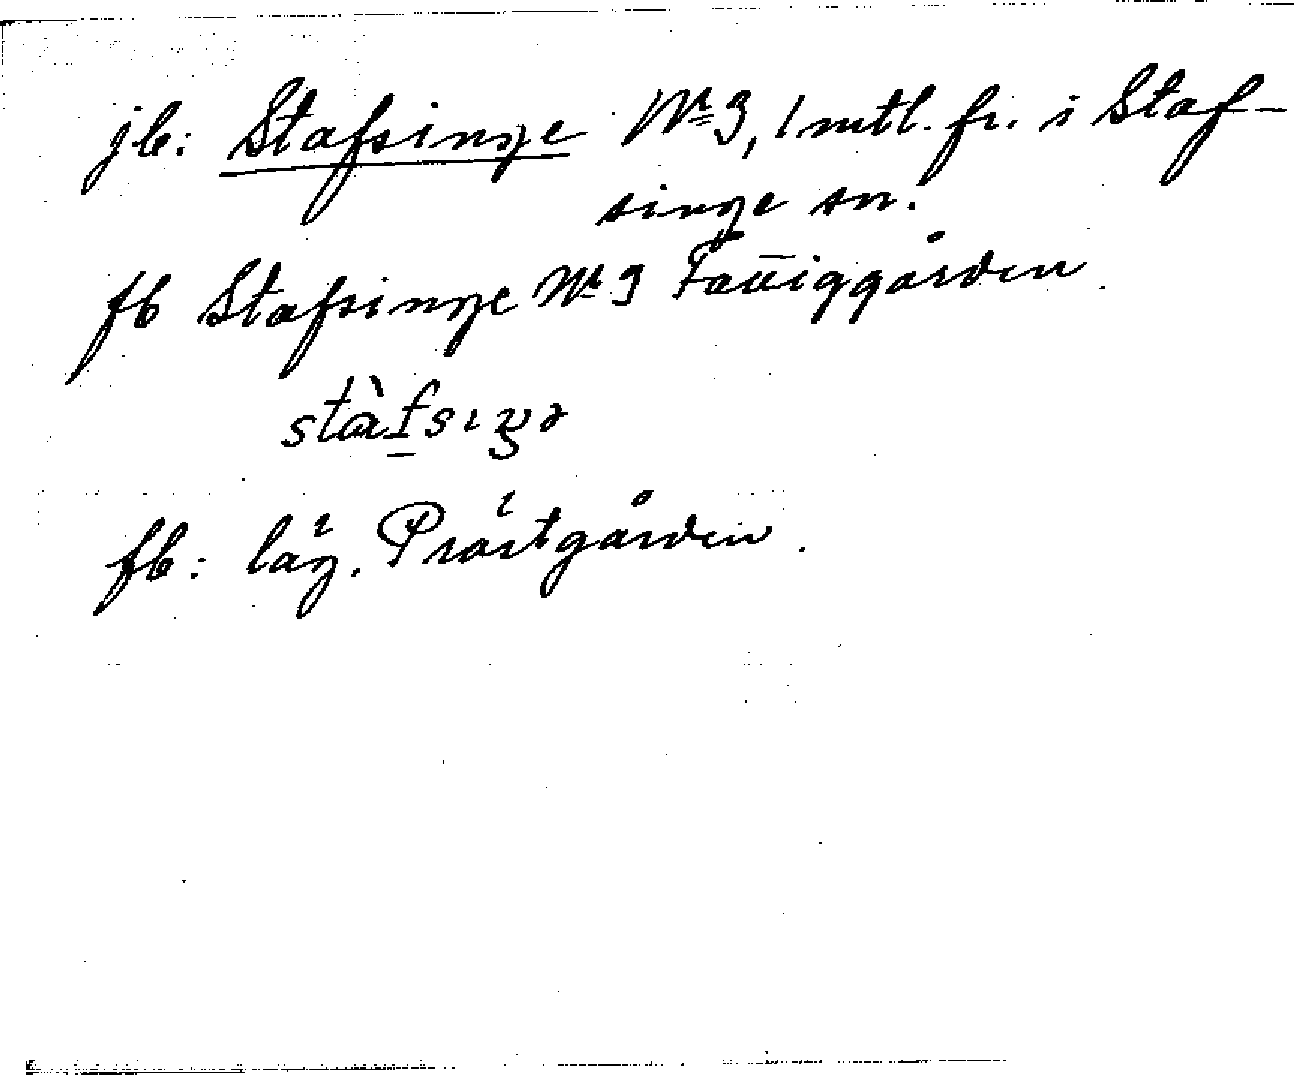 jb: Stafsinge Nr 3, 1 mtl. fr. i Staf-
singe sn.
fb Stafsinge Nr 3 Fattiggården.
stàfsıŋə
fb: läg. Prästgården.